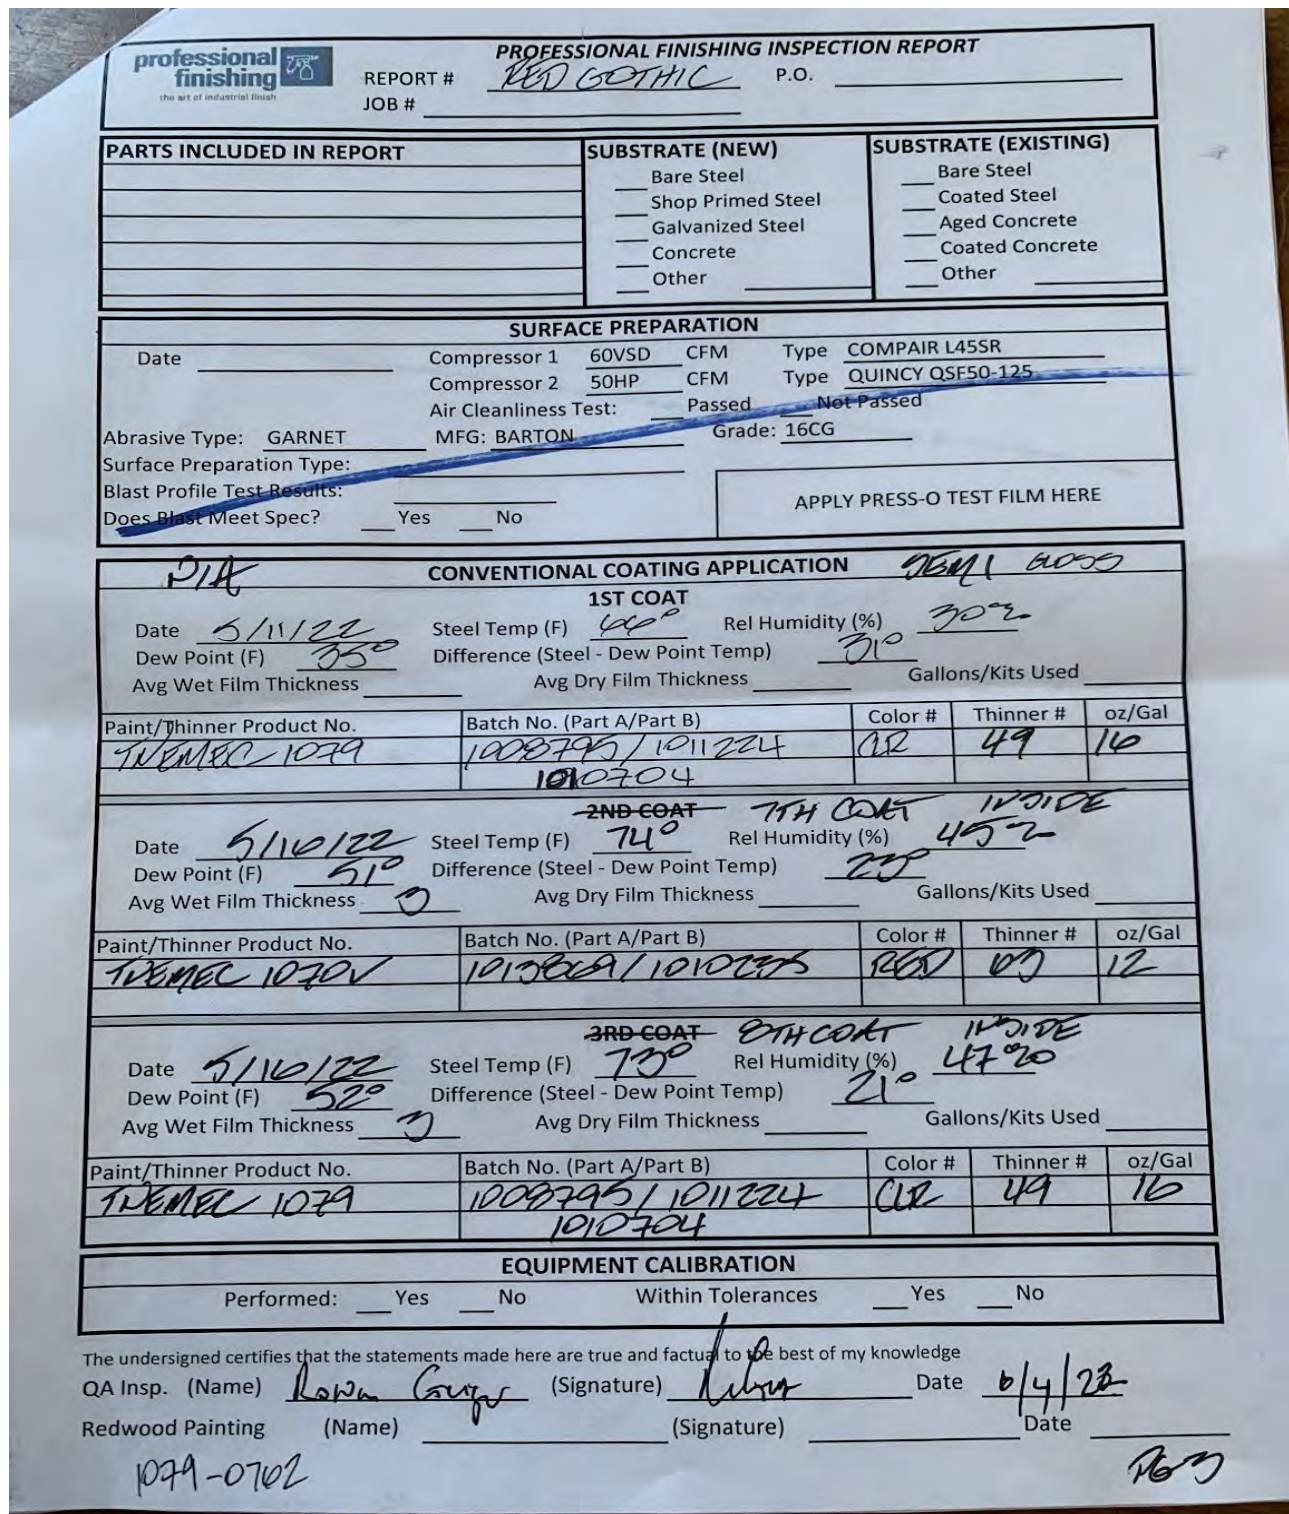 professional finishing
the art of industrial finish
PROFESSIONAL FINISHING INSPECTION REPORT
REPORT # RED GOTHIC P.O.
JOB #
PARTS INCLUDED IN REPORT
SUBSTRATE (NEW)
Bare Steel
Shop Primed Steel
Galvanized Steel
Concrete
Other
SUBSTRATE (EXISTING)
Bare Steel
Coated Steel
Aged Concrete
Coated Concrete
Other
SURFACE PREPARATION
Date Compressor 1 60VSD CFM Type COMPAIR L45SR
Compressor 2 50HP CFM Type QUINCY QSF50-125
Air Cleanliness Test: Passed Not Passed
Abrasive Type: GARNET MFG: BARTON Grade: 16CG
Surface Preparation Type:
Blast Profile Test Results:
Does Blast Meet Spec? Yes No
APPLY PRESS-O TEST FILM HERE
CONVENTIONAL COATING APPLICATION SEMI GLOSS
1ST COAT
Date 5/11/22 Steel Temp (F) 66° Rel Humidity (%) 30%
Dew Point (F) 35° Difference (Steel - Dew Point Temp) 31°
Avg Wet Film Thickness Avg Dry Film Thickness Gallons/Kits Used
Paint/Thinner Product No. Batch No. (Part A/Part B) Color # Thinner # oz/Gal
TNEMEC 1079 1008795/1011224 CLR 49 16
1010704
2ND COAT 7TH COAT INSIDE
Date 5/16/22 Steel Temp (F) 74° Rel Humidity (%) 45%
Dew Point (F) 51° Difference (Steel - Dew Point Temp) 23°
Avg Wet Film Thickness 3 Avg Dry Film Thickness Gallons/Kits Used
Paint/Thinner Product No. Batch No. (Part A/Part B) Color # Thinner # oz/Gal
TNEMEC 1070V 1013869/1010235 RED 63 12
3RD COAT 8TH COAT INSIDE
Date 5/16/22 Steel Temp (F) 73° Rel Humidity (%) 47%
Dew Point (F) 52° Difference (Steel - Dew Point Temp) 21°
Avg Wet Film Thickness 3 Avg Dry Film Thickness Gallons/Kits Used
Paint/Thinner Product No. Batch No. (Part A/Part B) Color # Thinner # oz/Gal
TNEMEC 1079 1008795/1011224 CLR 49 16
1010704
EQUIPMENT CALIBRATION
Performed: Yes No Within Tolerances Yes No
The undersigned certifies that the statements made here are true and factual to the best of my knowledge
QA Insp. (Name) Rowan (Signature) Date 6/4/22
Redwood Painting (Name) (Signature) Date
1079-0762 PG 3